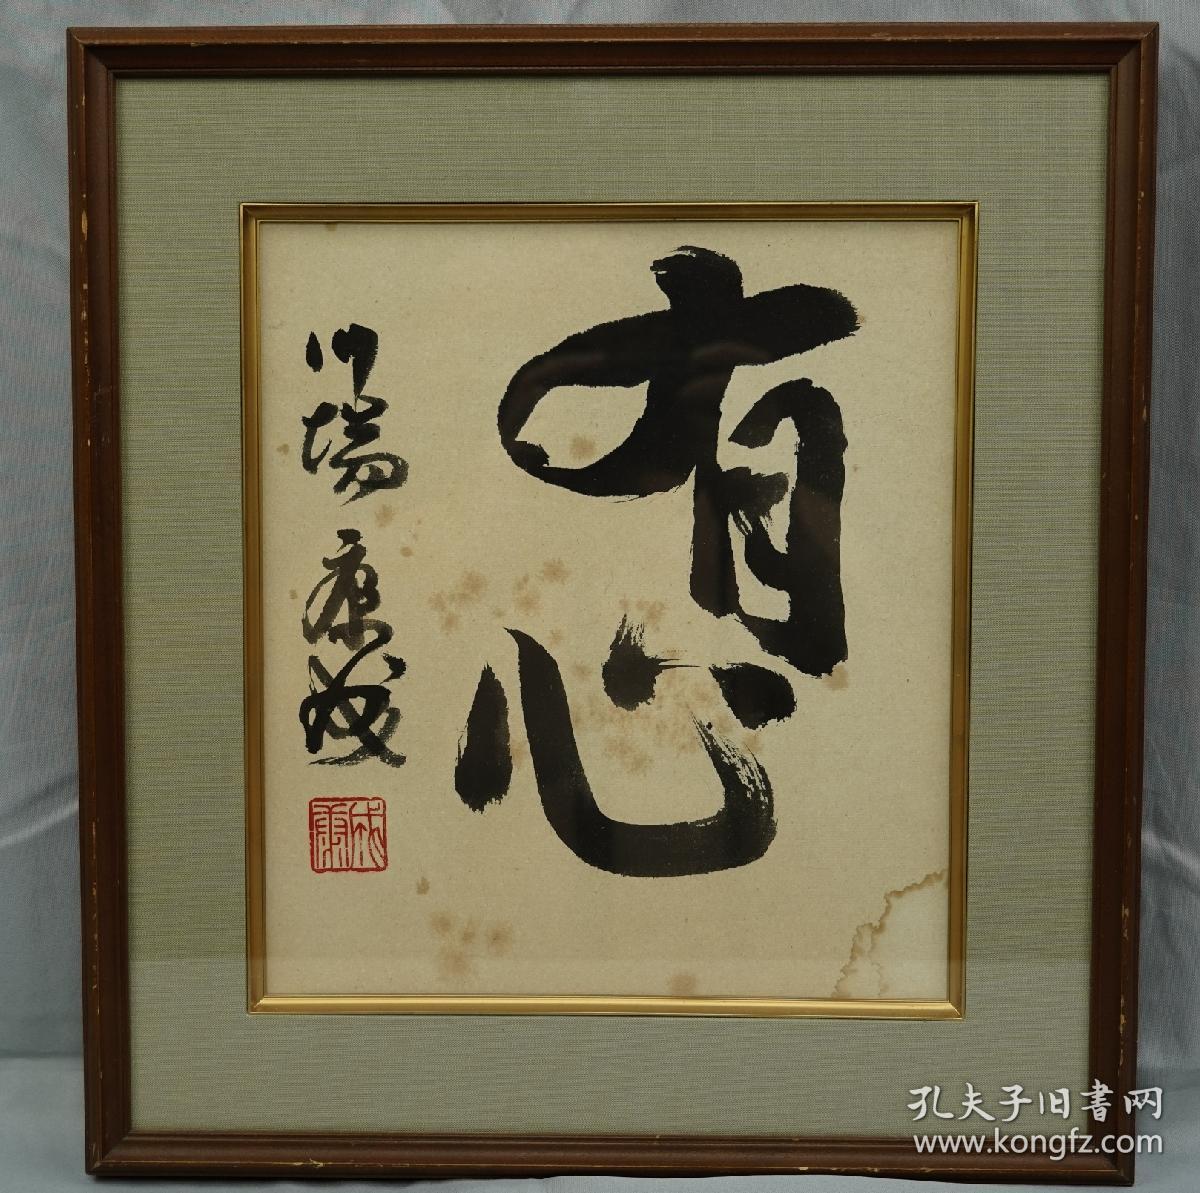 有心
川端康成
康成
孔夫子旧書网
www.kongfz.com